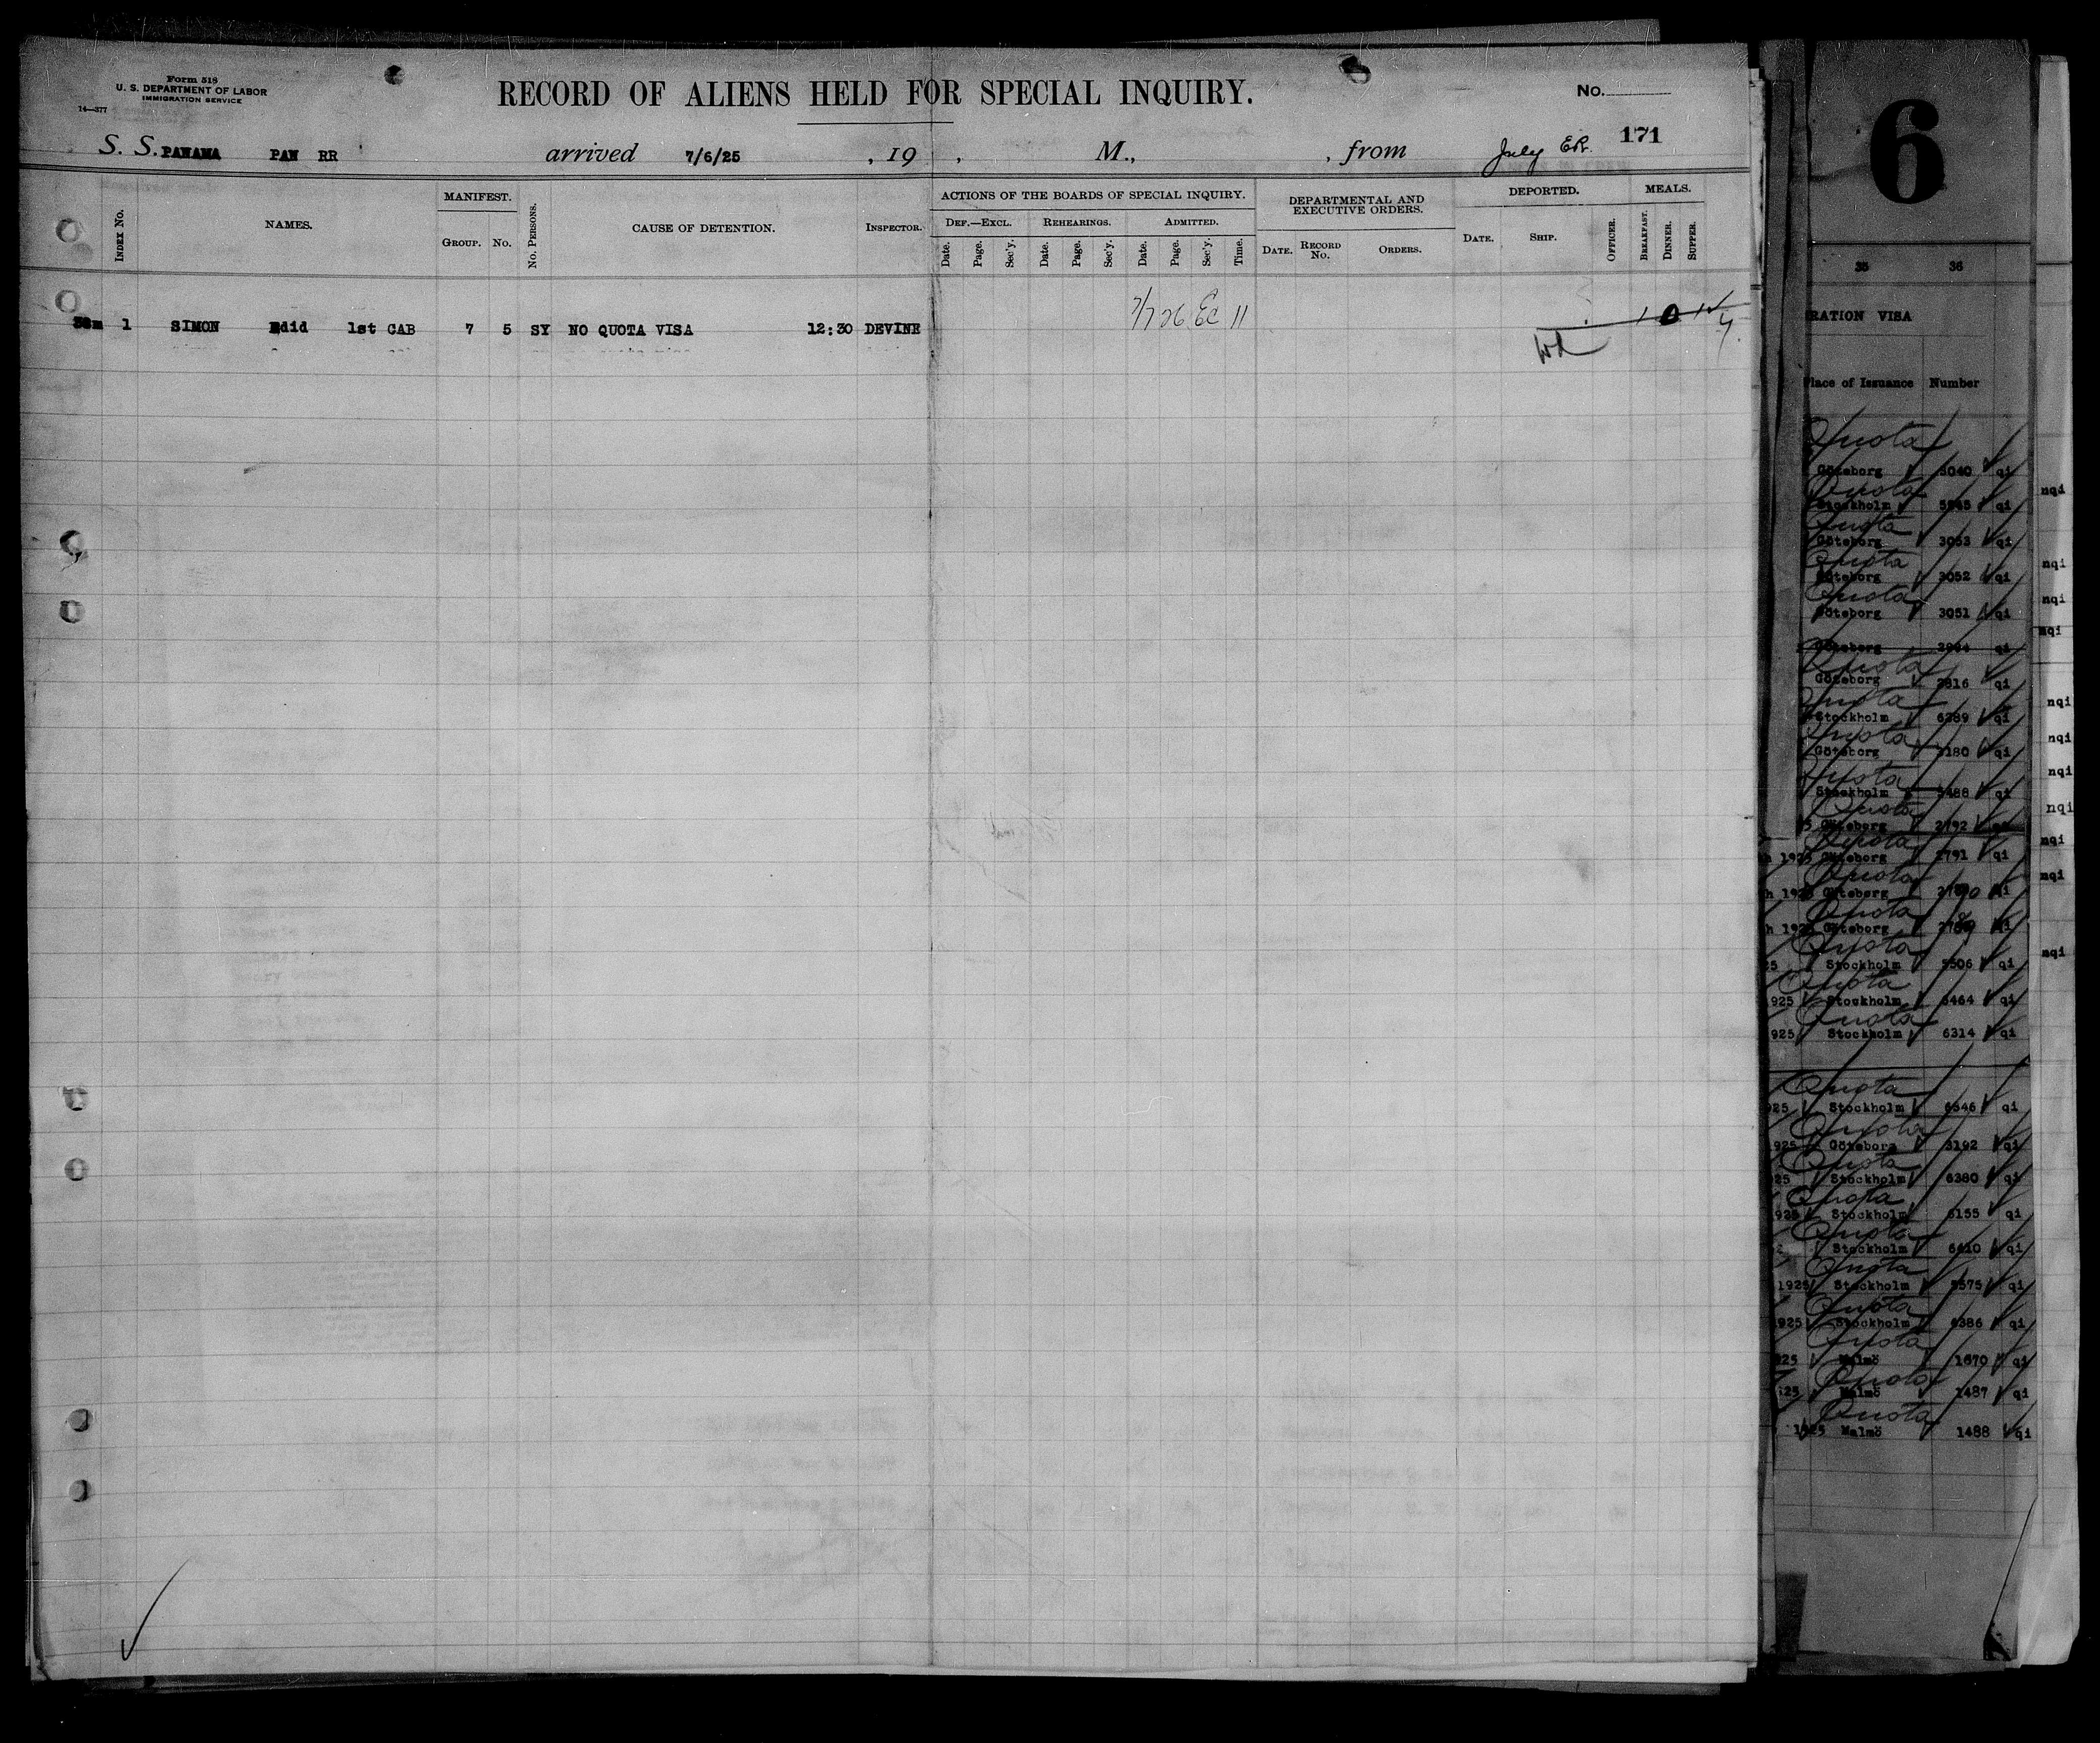 Form 518
U. S. DEPARTMENT OF LABOR
IMMIGRATION SERVICE
14—377
RECORD OF ALIENS HELD FOR SPECIAL INQUIRY.
No.
171
S. S. PANAMA PAN RR arrived 7/6/25 , 19 , M., , from July ER.
INDEX NO.
NAMES.
MANIFEST.
GROUP. NO.
NO. PERSONS.
CAUSE OF DETENTION.
INSPECTOR.
ACTIONS OF THE BOARDS OF SPECIAL INQUIRY.
DEF.—EXCL. REHEARINGS. ADMITTED.
Date. Page. Sec'y. Date. Page. Sec'y. Date. Page. Sec'y. Time.
DEPARTMENTAL AND
EXECUTIVE ORDERS.
DATE. RECORD NO. ORDERS.
DEPORTED.
DATE. SHIP. OFFICER.
MEALS.
BREAKFAST. DINNER. SUPPER.
1 SIMON Edid 1st CAB 7 5 SY NO QUOTA VISA 12:30 DEVINE 7/7 26 11
6
35 36
RATION VISA
Place of Issuance Number
Quota
Göteborg 3040 qi
Quota
Stockholm qi
nqi
Quota
Göteborg 3053 qi
Quota
Göteborg 3052 qi
nqi
Quota
Göteborg 3051 qi
nqi
nqi
Göteborg qi
Quota
Göteborg 2816 qi
Quota
Stockholm 6389 qi
nqi
Quota
Göteborg 3180 qi
nqi
Quota
Stockholm qi
nqi
Quota
Göteborg 2792
nqi
Quota
1925 Göteborg 2791 qi
nqi
Quota
h 1925 Göteborg qi
nqi
Quota
h 1925 Göteborg qi
Quota
25 Stockholm qi
nqi
Quota
925 Stockholm 6464 qi
Quota
925 Stockholm 6314 qi
Quota
925 Stockholm 6546 qi
Quota
925 Göteborg 3192 qi
Quota
25 Stockholm 6380 qi
Quota
925 Stockholm 6155 qi
Quota
Stockholm 6410 qi
Quota
1925 Stockholm qi
Quota
925 Stockholm 6386 qi
Quota
925 Malmö 1670 qi
Quota
25 Malmö 1487 qi
Quota
1925 Malmö 1488 qi